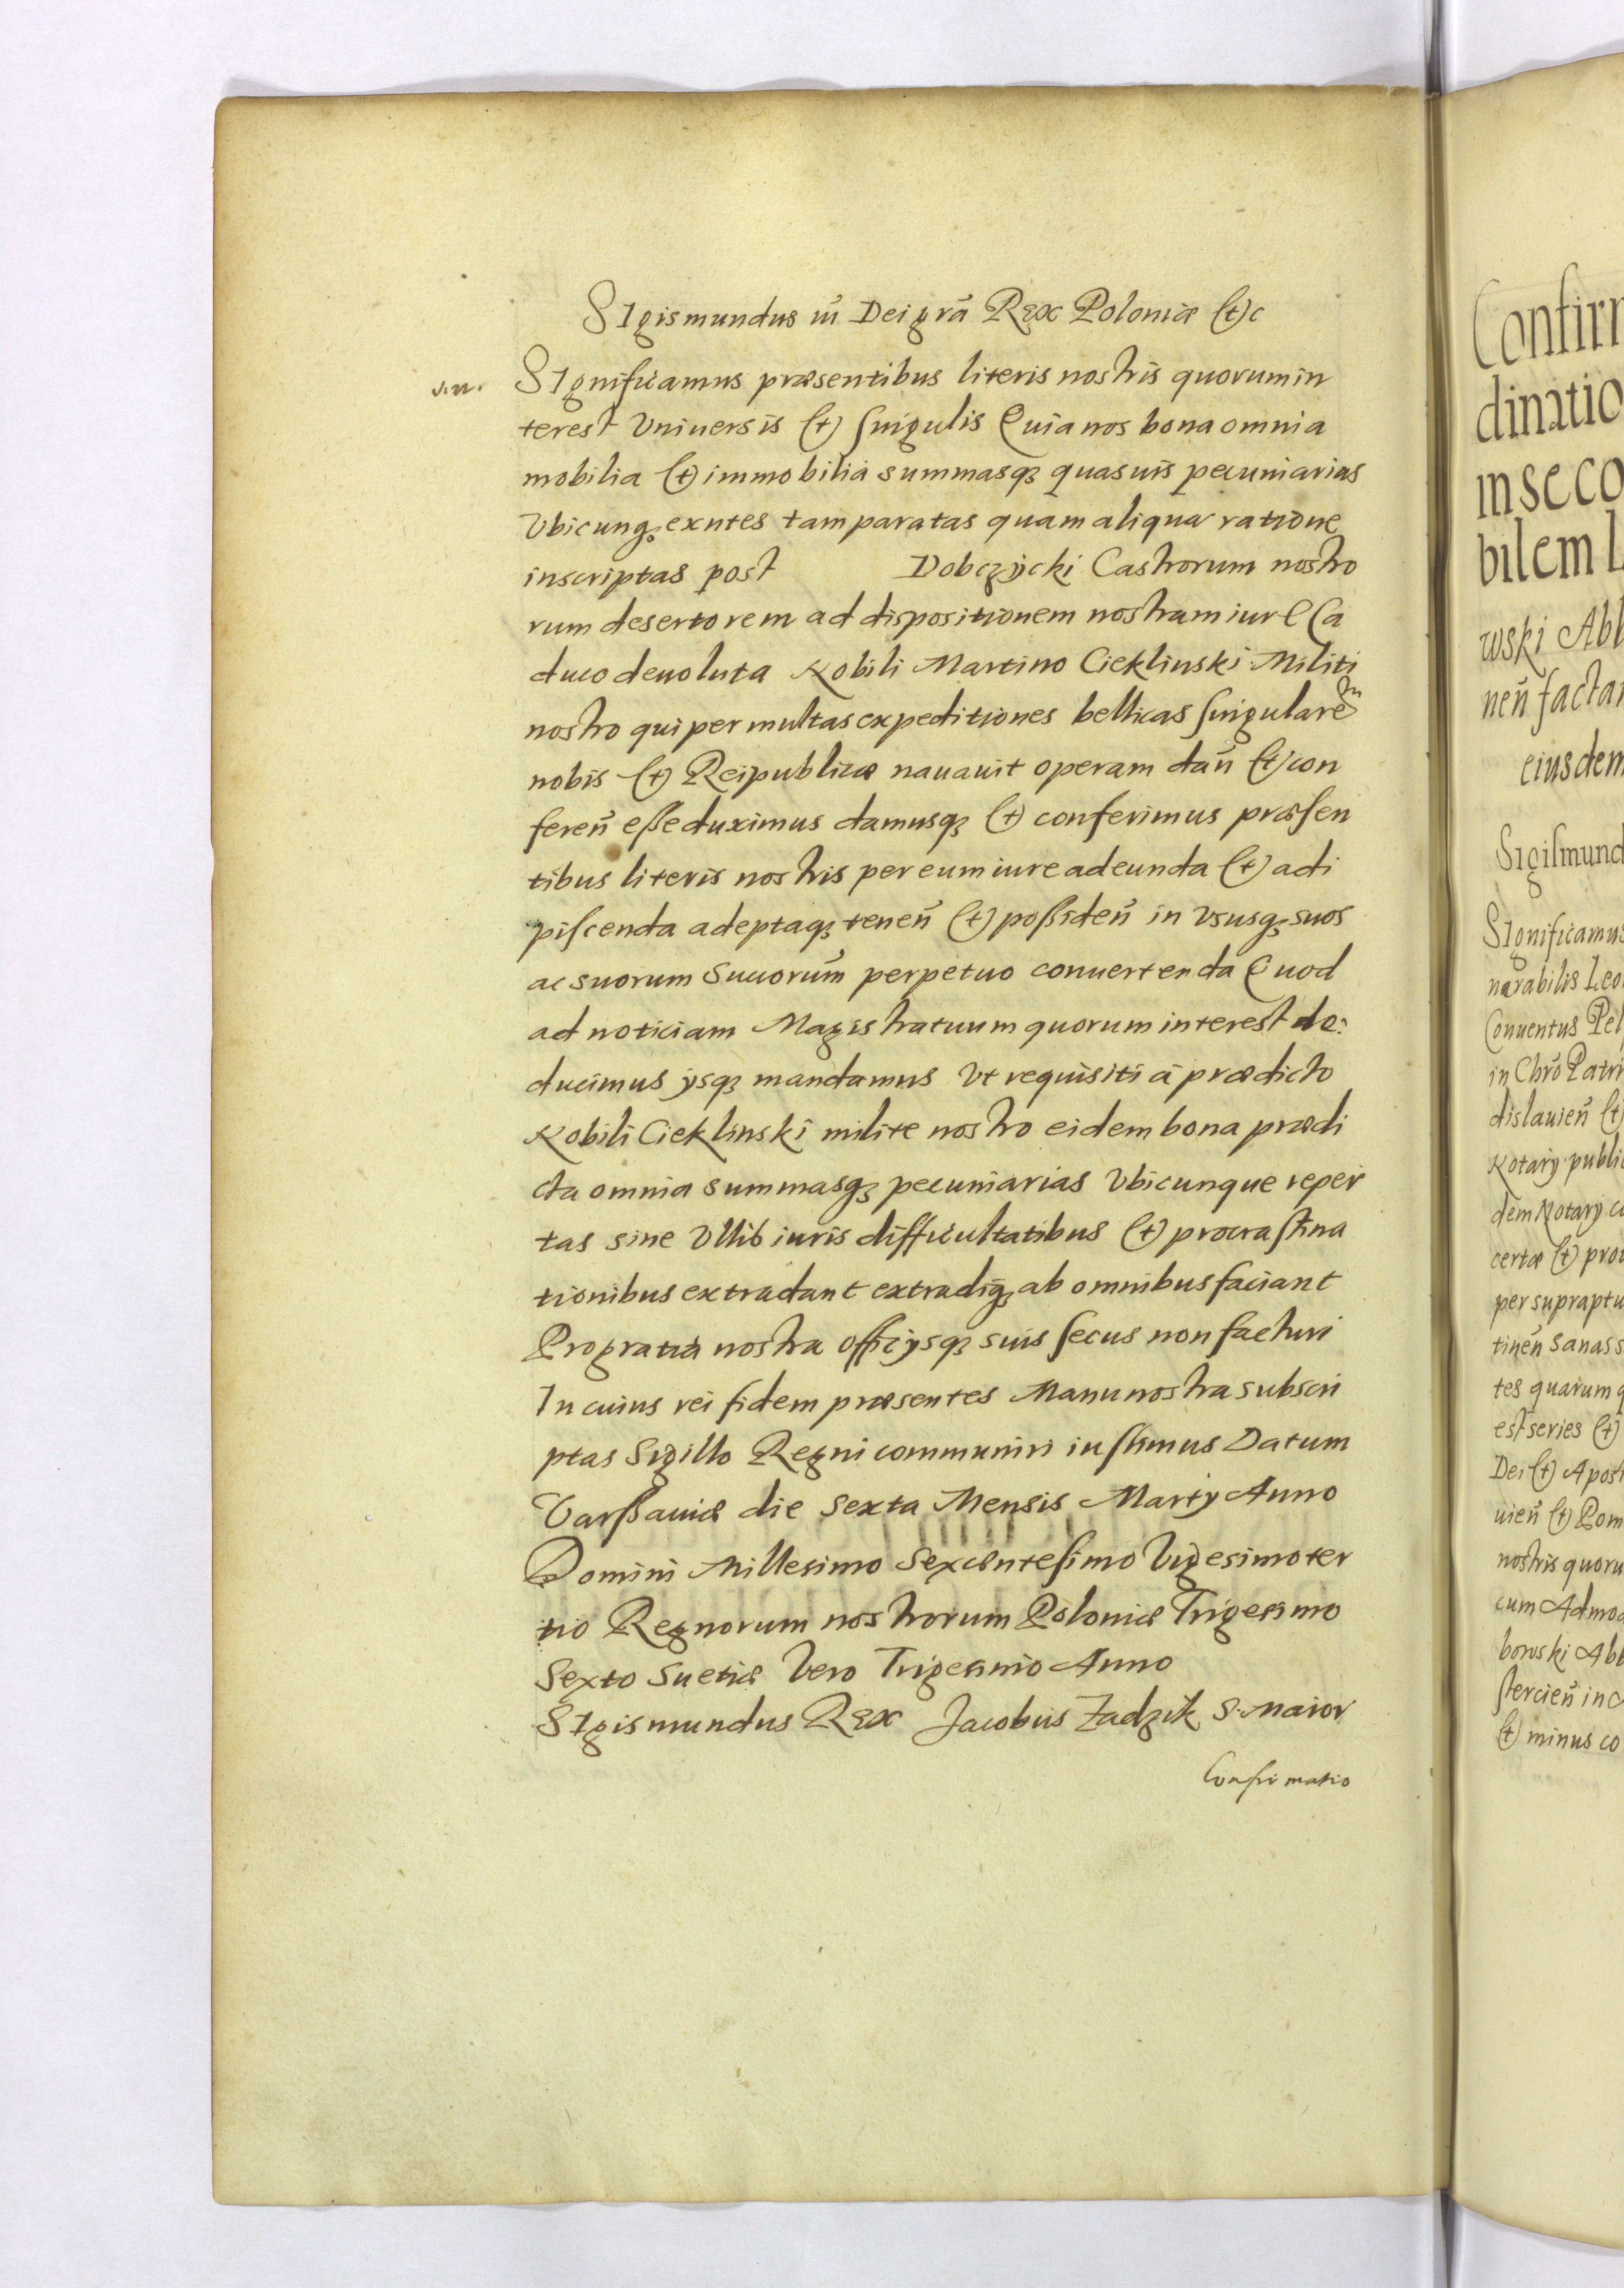 SIgismundus iıı Dei grã Rex Poloniæ &c
SIgnificamus præsentibus literis nostris quorum in
terest Vniuersis & singulis Quia nos bona omnia
mobilia & immobilia summasq3 quasuis pecuniarias
Vbicunq3 exntes tam paratas quam aliqua ratione
inscriptas post Dobczÿcki Castrorum nostro
rum desertorem ad dispositionem nostram iure Ca
duco deuoluta Nobili Martino Cieklinski Militi
nostro qui per multas expeditiones bellicas singularem
nobis & Reipublicæ nauauit operam dañ & con
fereñ esse duximus damusq3 & conferimus præsen
tibus literis nostris per eum iure adeunda & adi
piscenda adeptaq3 teneñ & possideñ in Vsusq3 suos
ac suorum Succorum̃ perpetuo conuertenda Quod
ad noticiam Magistratuum quorum interest de:
ducimus ÿsq3 mandamus Vt requisiti à prædicto
Nobili Cieklinski milite nostro eidem bona prædi
cta omnia summasq3 pecuniarias Vbicunque reper
tas sine Vllis iuris difficultatibus & procrastina
tionibus extradant extradiq3 ab omnibus faciant
Pro gratia nostra officÿsq3 suis secus non facturi
In cuius rei fidem præsentes Manu nostra subscri
ptas Sigillo Regni communiri iussimus Datum
Varssauiæ die Sexta Mensis Martÿ Anno
Domini Millesimo Sexcentesimo Vigesimo ter
tio Regnorum nostrorum Poloniæ Trigesimo
Sexto Suetiæ Vero Trigesimo Anno
SIgismundus Rex Jacobus Zadzik S. Maior
Confirmatio
dinatio
in se co
bilem
wski Abb
neñ facta
eiusdem
Sigismund
SIgnificamus
narabilis Leo
Conuentus Pel
in Chrõ Patri
dislauieñ &
Notarÿ publi
dem Notarÿ
certæ & pro
per suprapt
tineñ Sanas s
tes quarum
est series &
Dei & Apost
uieñ & Pom
nostris quoru
cum Admod
borski Abb
stercieñ in
& minus co